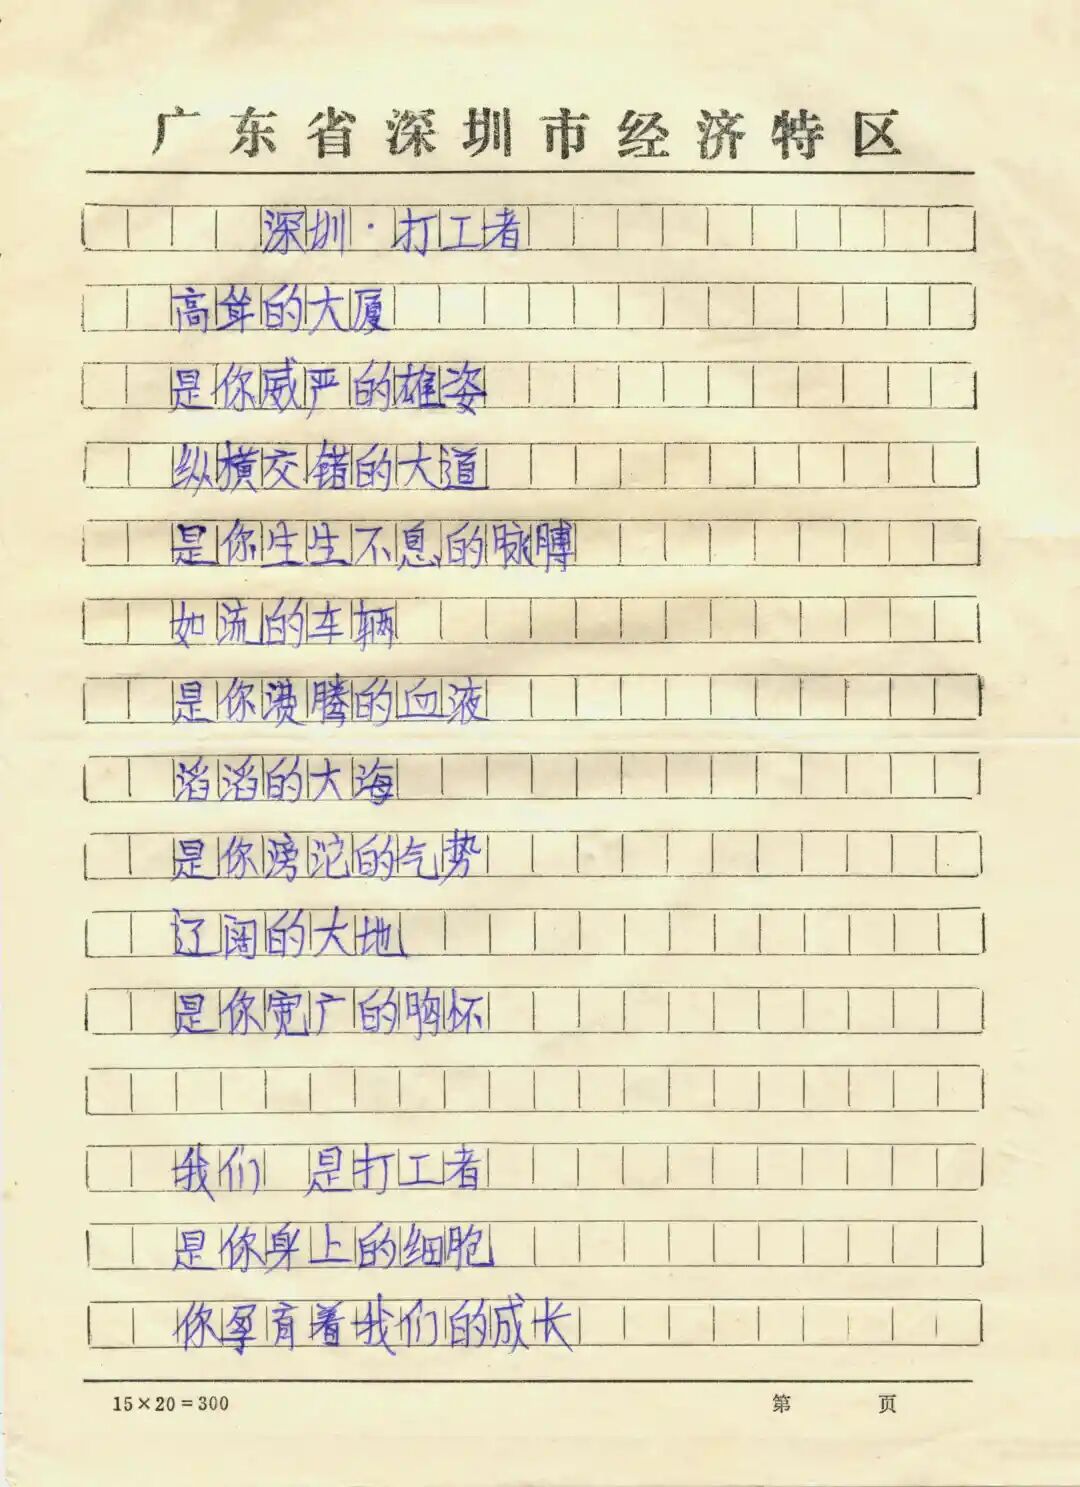 广东省深圳市经济特区
深圳·打工者
高耸的大厦
是你威严的雄姿
纵横交错的大道
是你生生不息的脉膊
如流的车辆
是你沸腾的血液
滔滔的大海
是你滂沱的气势
辽阔的大地
是你宽广的胸怀
我们 是打工者
是你身上的细胞
你孕育着我们的成长
15×20=300 第 页